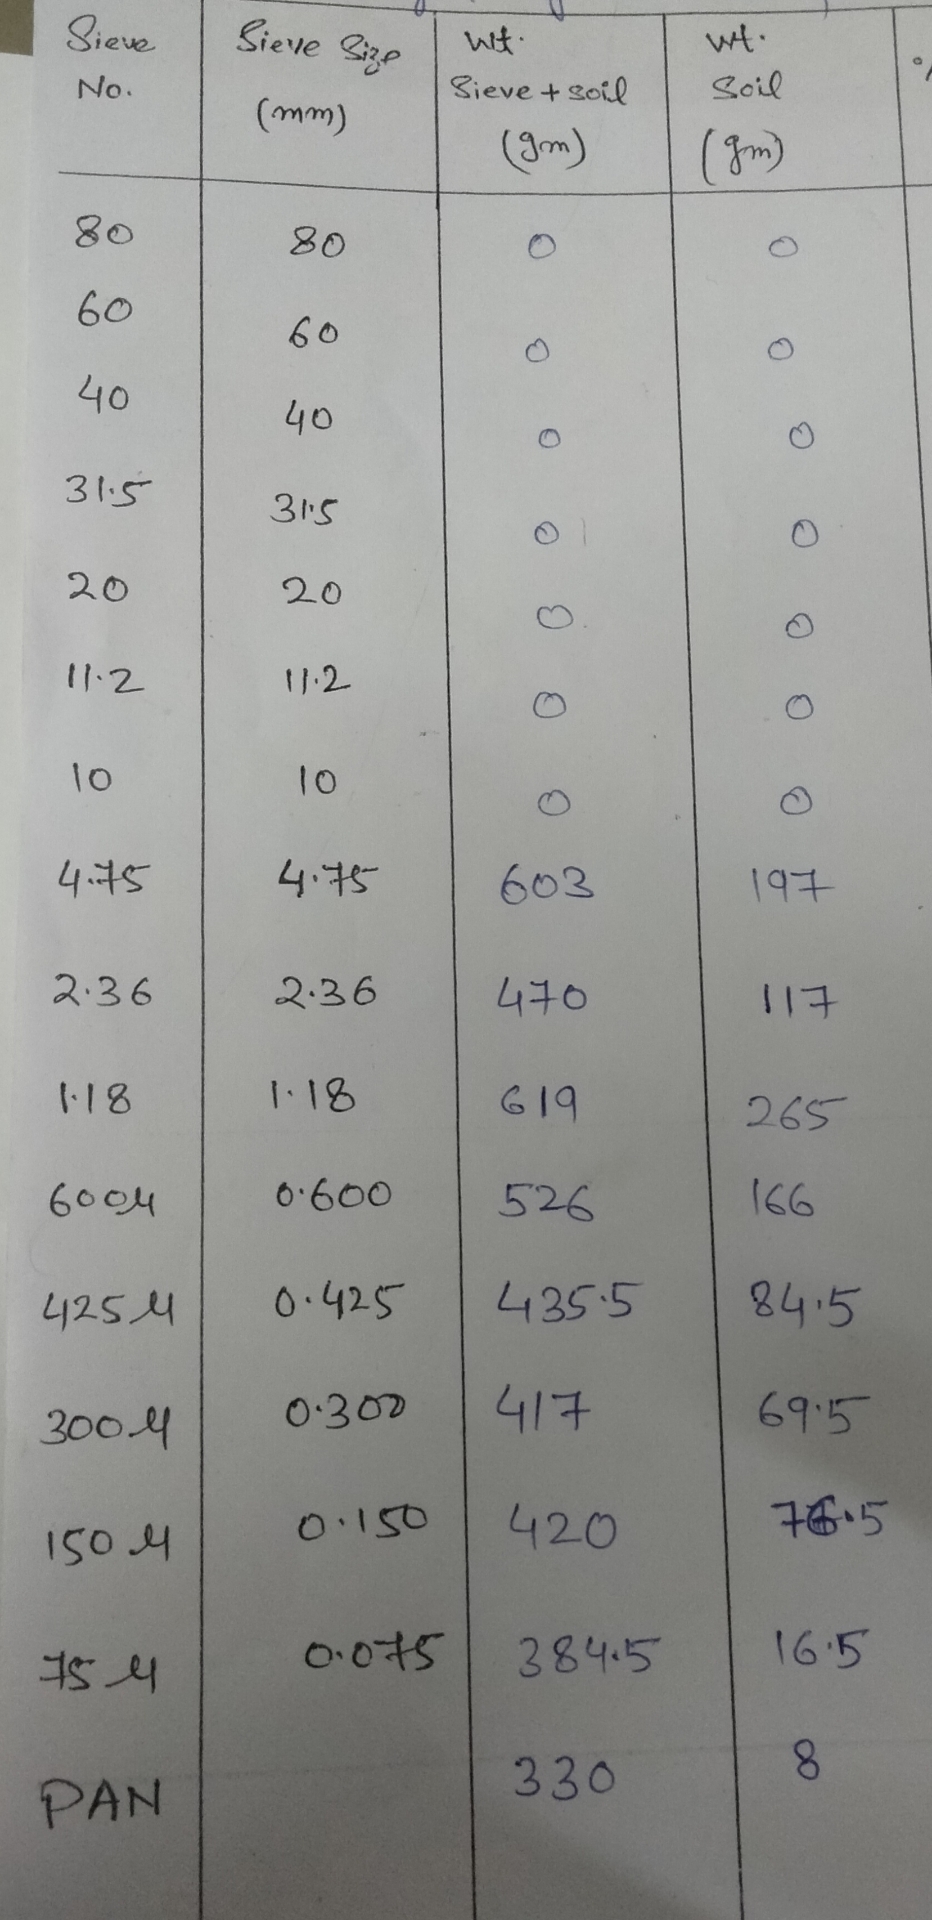 Sieve No. Sieve Size (mm) Wt. Sieve + soil (gm) wt. Soil (gm)
80 80 0 0
60 60 0 0
40 40 0 0
31.5 31.5 0 0
20 20 0 0
11.2 11.2 0 0
10 10 0 0
4.75 4.75 603 197
2.36 2.36 470 117
1.18 1.18 619 265
600μ 0.600 526 166
425μ 0.425 435.5 84.5
300μ 0.300 417 69.5
150μ 0.150 420
75μ 0.075 384.5 16.5
PAN 330 8